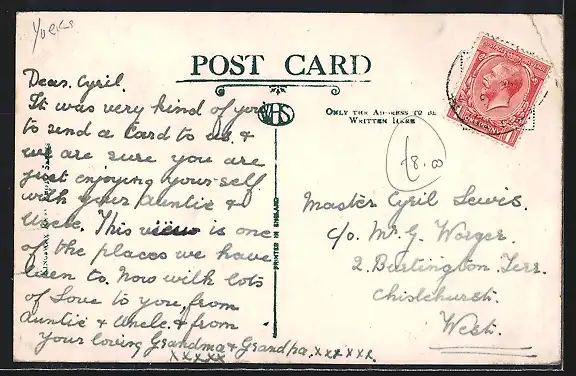 Yorks
POST CARD
Dear Cyril.
It was very kind of you
to send a Card to us. &
we are sure you are
just enjoying your-self
with your Auntie &
Uncle. This view is one
of the places we have
been to. Now with lots
of Love to you, from
Auntie & Uncle, & from
Your loving Grandma & Grandpa. xxxxxx
xxxxx
WHS
PRINTED IN ENGLAND
ONLY THE ADDRESS TO BE
WRITTEN HERE
£8.00
Master Cyril Lewis.
c/o. Mr. G. Worger.
2. Burlington Terr.
Chislehurst.
West.